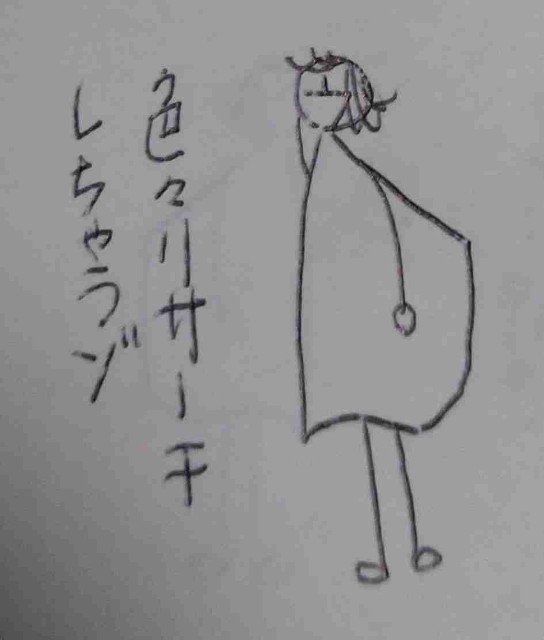 色々リサーチ
しちゃうゾ